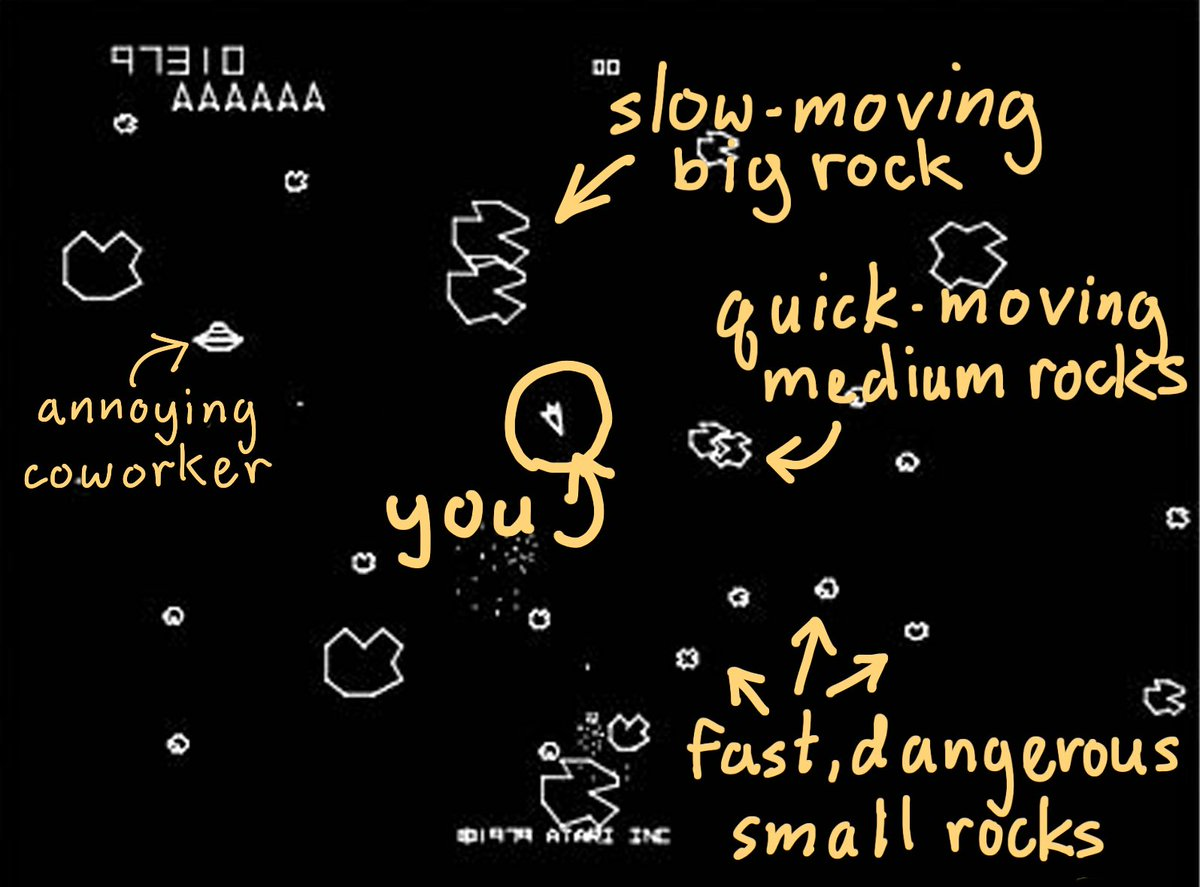 97310
AAAAAA
00
slow-moving
big rock
quick-moving
medium rocks
annoying
coworker
you
fast, dangerous
small rocks
©1979 ATARI INC